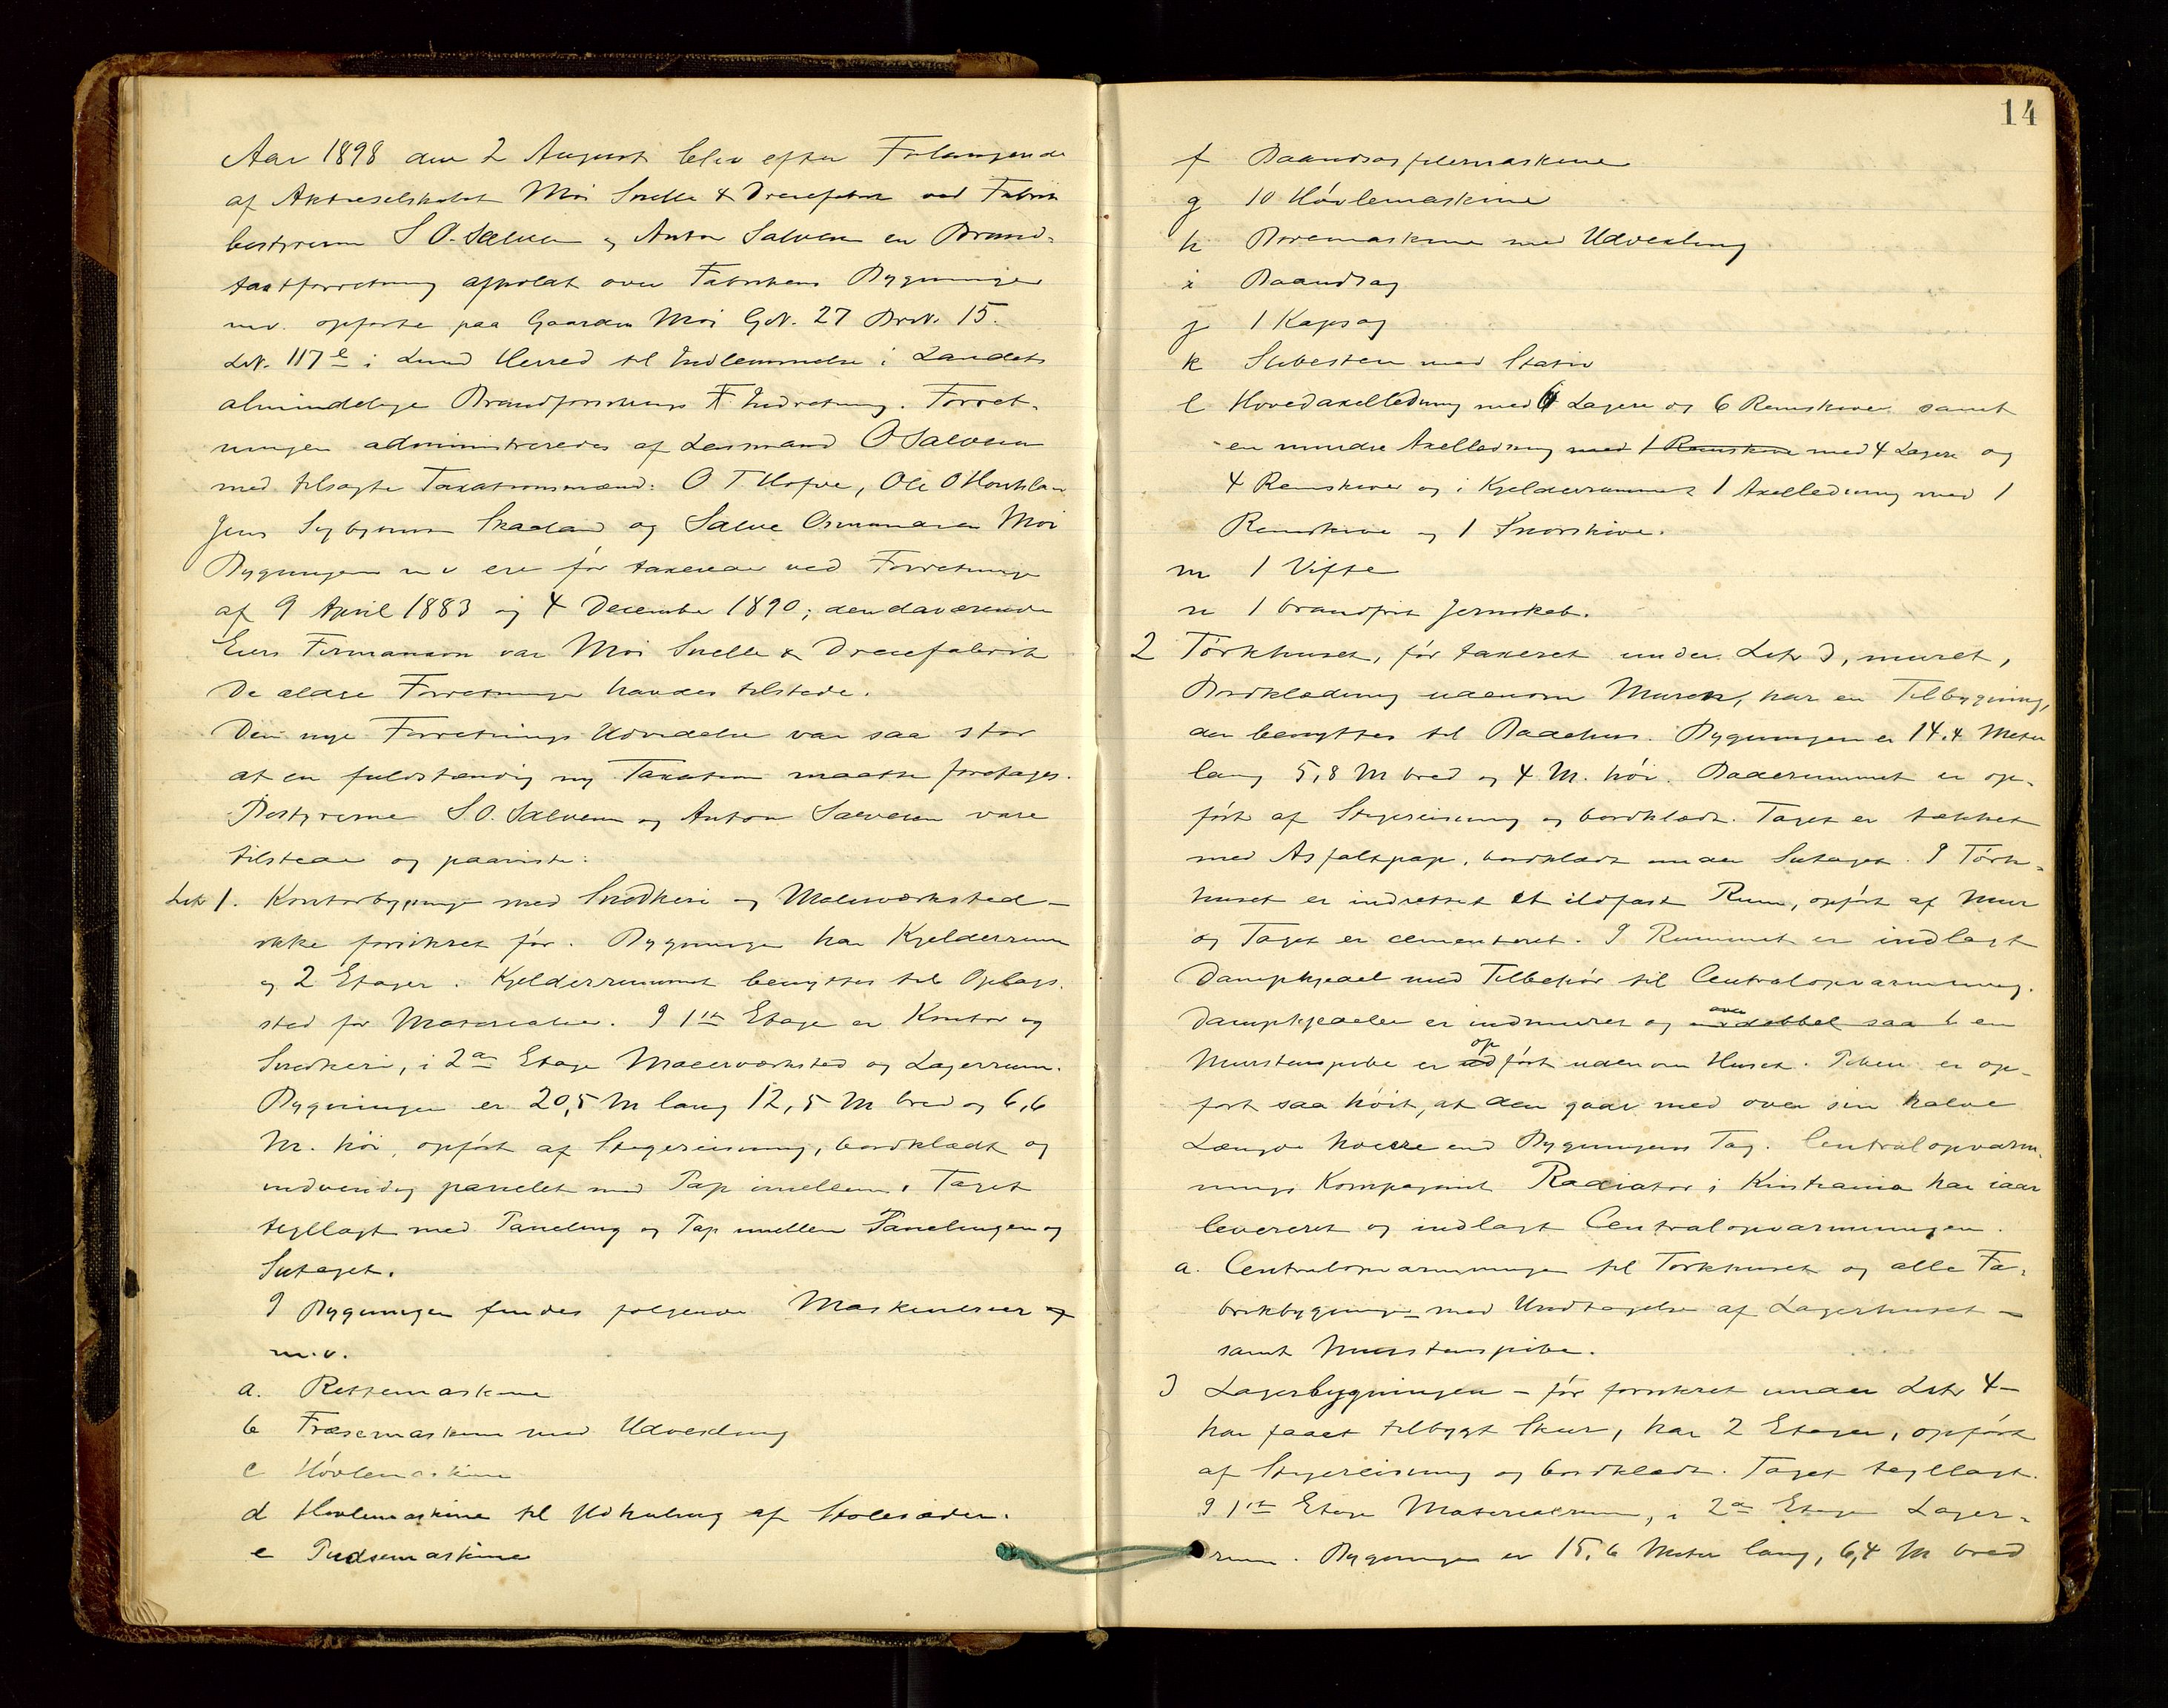 Aar 1898 den 2 August blev efter Forlangende
af Aktieselskabet Moi Snelle & Dreiefabrik ved Fabrik
bestyrerne S O. Salvesen og Anton Salvesen en Brand-
taxtforretning afholdt over Fabrikens Bygninger
m.v. opførte paa Gaarden Moi GN. 27 BrN. 15.
LN. 117 e i Lund Herred til Indlemmelse i Landets
almindelige Brandforsikrings Indretning. Forret-
ningen administreredes af Lensmand O Salvesen
med tilsagte Taxationsmænd: O T Hofve, Ole O
Jens Skaaland og Salve Osmundsen Moi
Bygningen m v ere før taxerede ved Forretninge
af 9 April 1883 og 4 December 1890; den daværende
Eiers Firmanavn var Moi Snelle & Dreiefabrik
De ældre Forretninger havdes tilstede.
Den nye Forretnings Udvidelse var saa stor
at en fuldstændig ny Taxation maatte foretages.
Bestyrerne S O. Salvesen og Anton Salvesen vare
tilstede og paaviste:
Litr 1. Kontorbygninge med Snedkeri og Maleværksted -
ikke forsikret før. Bygningen har Kjelderrum
og 2 Etager. Kjelderrummet benyttes til Oplags-
sted for Materialier. I 1ste Etage er Kontor og
Snedkeri, i 2den Etage Malerværksted og Lagerrum.
Bygningen er 20,5 M lang 12,5 M bred og 6,6
M. høi, opført af Stagereisning, bordklædt og
indvendig panelet med Pap imellem. Taget
tegllagt med Paneling og Pap mellem Panelingen og
Sutaget.
I Bygningen findes følgende Maskinerier og
m.v.
a. Rettemaskine
b Fræsemaskine med Udvexling
c Høvlemaskine
d Høvlemaskine til Udhuling af Stolesæder.
e Pudsemaskine
14
f Baandsagfilemaskine
g 10 Høvlemaskine
h Boremaskine med Udvexling
i Baandsag
j 1 Kapsag
k Slibesten med Stativ
l Hovedaxelledning med 6 Lagere og 6 Remskiver samt
en mindre Axelledning med 1 Remskive med 4 Lagere og
4 Remskiver og i Kjelderrummet 1 Axelledning med 1
Remskive og 1 Snorskive.
m 1 Vifte
n 1 brandfrit Jernskab.
2 Tørkhuset, før taxeret under Litr 3, muret,
Bordklædning udenom Muren, har en Tilbygning,
der benyttes til Badehus. Bygningen er 14.4 Meter
lang 5,8 M bred og 4 M. høi. Baderummet er op-
ført af Stagereisning og bordklædt. Taget er tækket
med Asfaltpap, bordklædt under Sutaget. I Tørk-
huset er indrettet et ildfast Rum, opført af Mur
og Taget er cementeret. I Rummet er indlagt
Dampkjedel med Tilbehør til Centralopvarmning.
Dampkjedelen er indmuret og over dobbel saa b en
Murstenspibe er op ført udenom Huset. Piben er op-
ført saa høit, at den gaar med over sin halve
Længde høiere end Bygningens Tag. Centralopvarm-
nings Kompagniet Radiator i Kristiania har iaar
leveret og indlagt Centralopvarmningen.
a. Centralopvarmningen til Tørkhuset og alle Fa-
brikbygninge - med Undtagelse af Lagerhuset -
samt Murstenspibe.
3 Lagerbygningen - før forsikret under Litr 4 -
har faaet tilbygt Skur, har 2 Etager, opført
af Stagereisning og bordklædt. Taget tegllagt.
I 1ste Etage Materialrum, i 2den Etage Lager-
rum. Bygningen er 15,6 Meter lang, 6,4 M bred